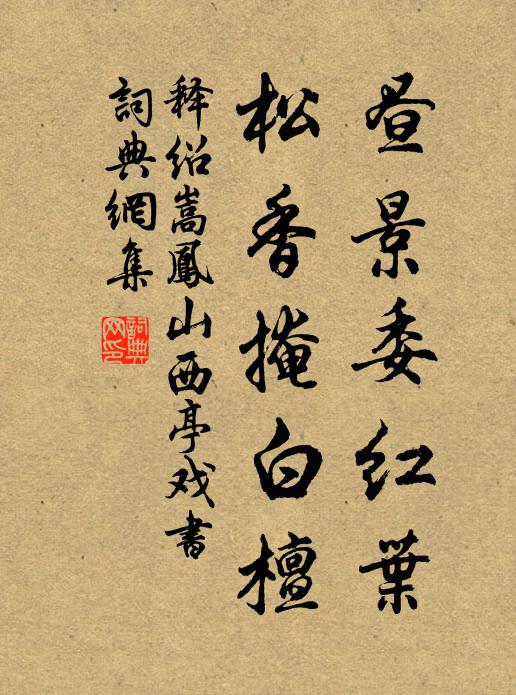 昼景委红葉
松香掩白檀
释绍嵩鳳山西亭戏書
詞典網集
詞典网印